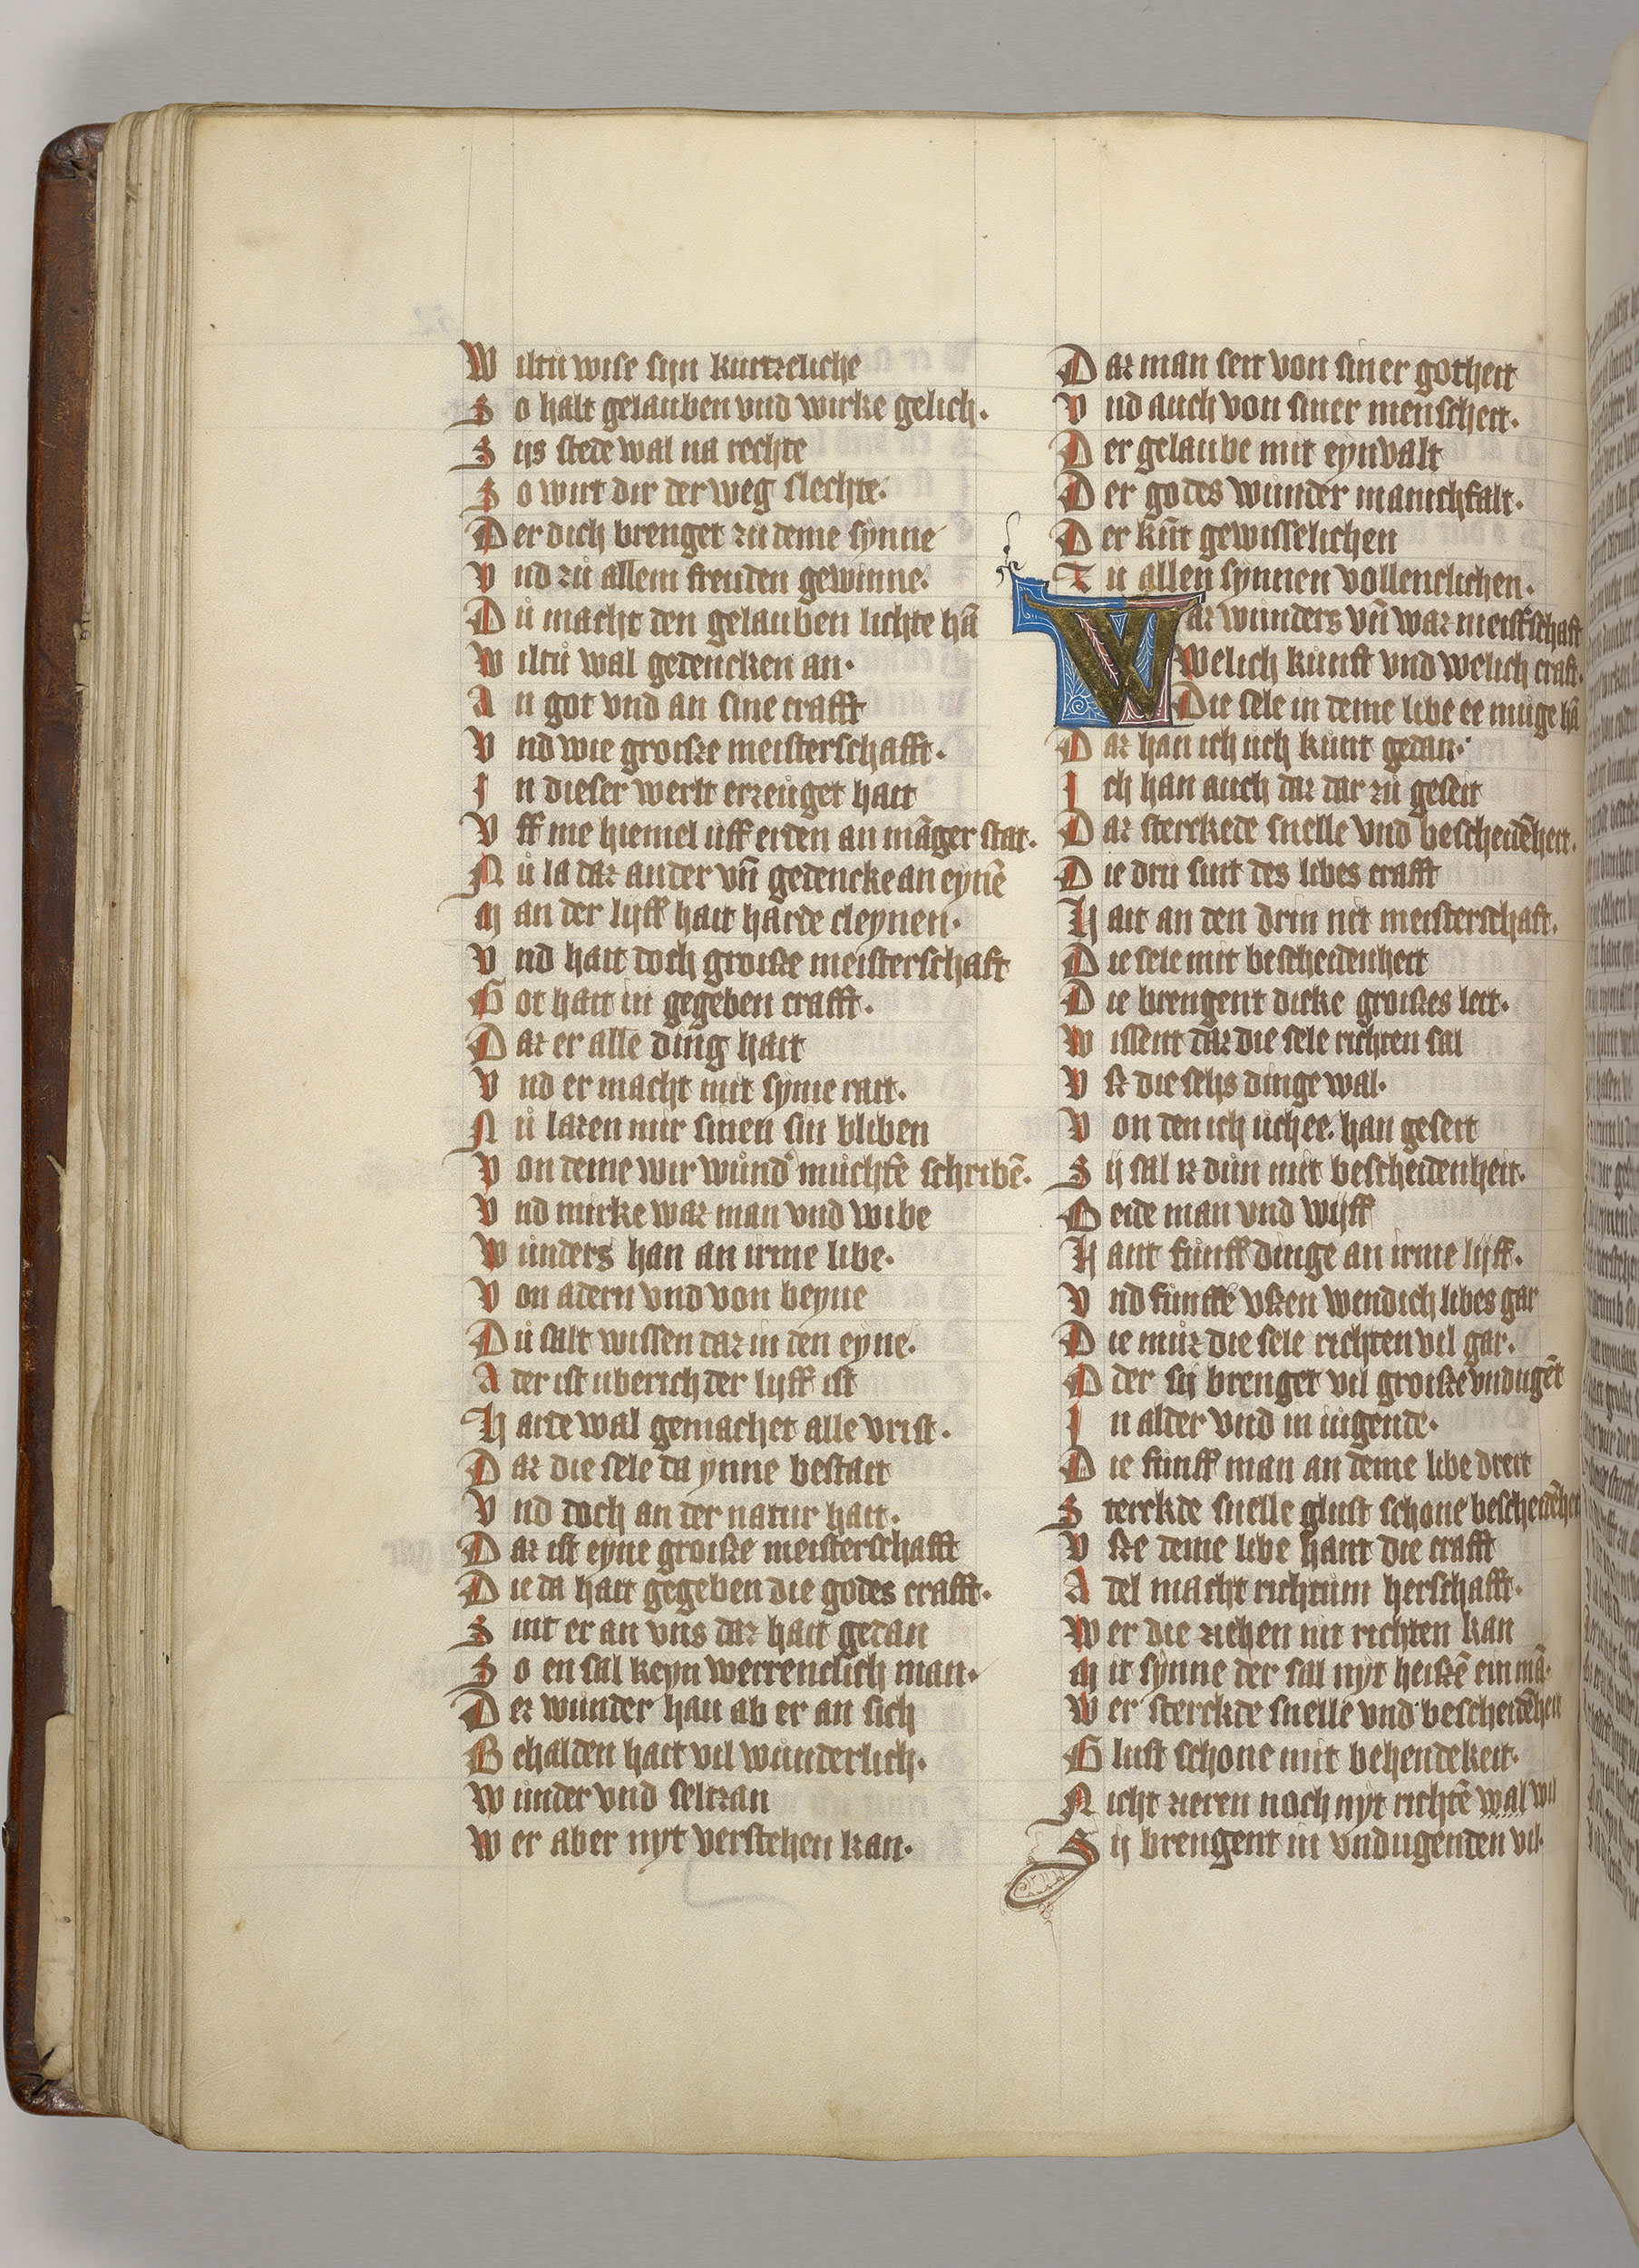 Wiltů wise sijn kurtzeliche
So halt gelauben vnd wirke gelich.
Sijs stede wal na rechte
So wirt dir der weg slechte.
Der dich brenget zů deme synne
Vnd zů allem freuden gewinne.
Dů macht den gelauben lichte hā
Wiltů wal gedencken an.
An got vnd an sine crafft
Vnd wie groiße meisterschafft.
In dieser werlt erzeuget hait
Vff me hiemel uff erden an māger stat.
Nů la daz ander vn̄ gedencke an eynē
Man der lijff hait harde cleynen.
Vnd hait doch groiße meisterschaft
Got hait in gegeben crafft.
Daz er alle ding hait
Vnd er macht mit syme rait.
Nů lazen mir sinen sin bliben
Von deme wir wůnd' můchtē schribē.
Vnd mirke waz man vnd wibe
Wůnders han an irme libe.
Von adern vnd von beyne
Dů salt wissen daz in den eyne.
Ader ist uberich der lijff ist
Harde wal gemachet alle vrist.
Daz die sele da ynne bestait
Vnd doch an der natur hait.
Daz ist eyne groiße meisterschafft
Die da hait gegeben die godes crafft.
Sint er an vns daz hait gedan
So en sal keyn werrentlich man.
Der wůnder han ab er an sich
Behalden hait vil wůnderlich.
Wůnder vnd seltzan
Wer aber nyt verstehen kan.
Daz man seit von siner gotheit
Vnd auch von siner menscheit.
Der gelaube mit eynvalt
Der godes wůnder manichfalt.
Der kūt gewisselichen
Zu allen synnen vollenclichen.
Waz wůnders vn̄ waz meisſchaft
Welich kůnst vnd welich craft.
Die sele in deme libe ee můge hā
Daz han ich uch kůnt gedan.
Ich han auch daz dar zů geseit
Daz sterckede snelle vnd bescheidēheit.
Die dru sint des libes crafft
Hait an den drin nit meisterschaft.
Die sele mit bescheidenheit
Die brengent dicke groißes leit.
Wissent daz die sele richten sal
Vß die sehs dinge wal.
Von den ich uch ee. han geseit
Sij sal iz důn mit bescheidenheit.
Beide man vnd wijff
Hant fůnff dinge an irme lijff.
Vnd fůnffe vßen wendich libes gar
Die můz die sele richten vil gar.
Oder sij brenget vil groiße vndugēt
In alder vnd in iugende.
Die fůnff man an deme libe dreit
Sterckde snelle glust schone bescheidēheit
Vße deme libe hant die crafft
Adel macht richtum herschafft.
Wer die ziehen nit richten kan
Mit synne der sal nyt heißē ein mā.
Wer sterckde snelle vnd bescheidēheit
Glust schone mit behendekeit.
Nicht zieren noch nyt richtē wal wil
Sij brengent in vndugenden vil.